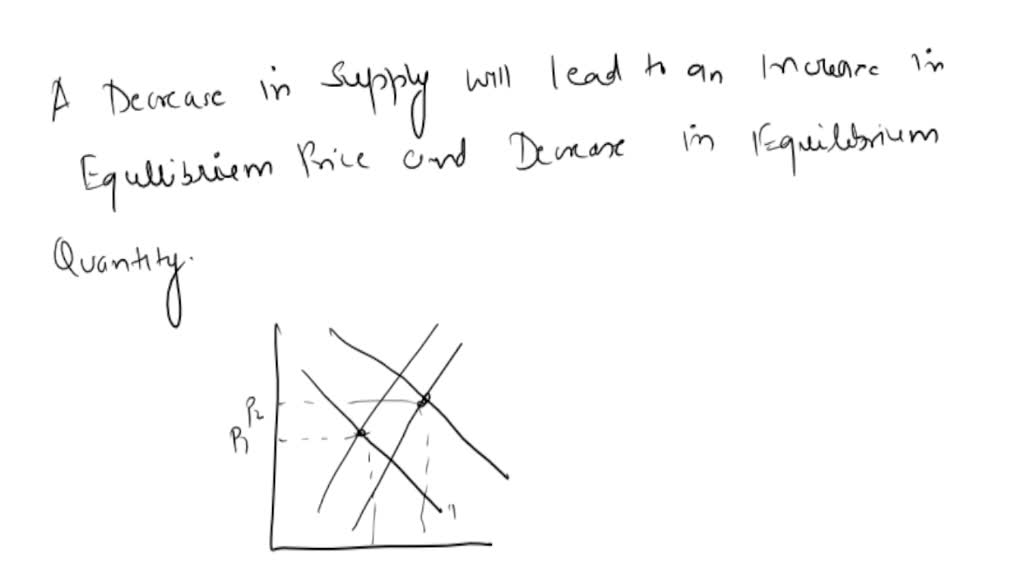 A Decrease in Supply will lead to an Increare in
Equllibriem Price and Decrease in Equilibrium
Quantity.
P2
P1